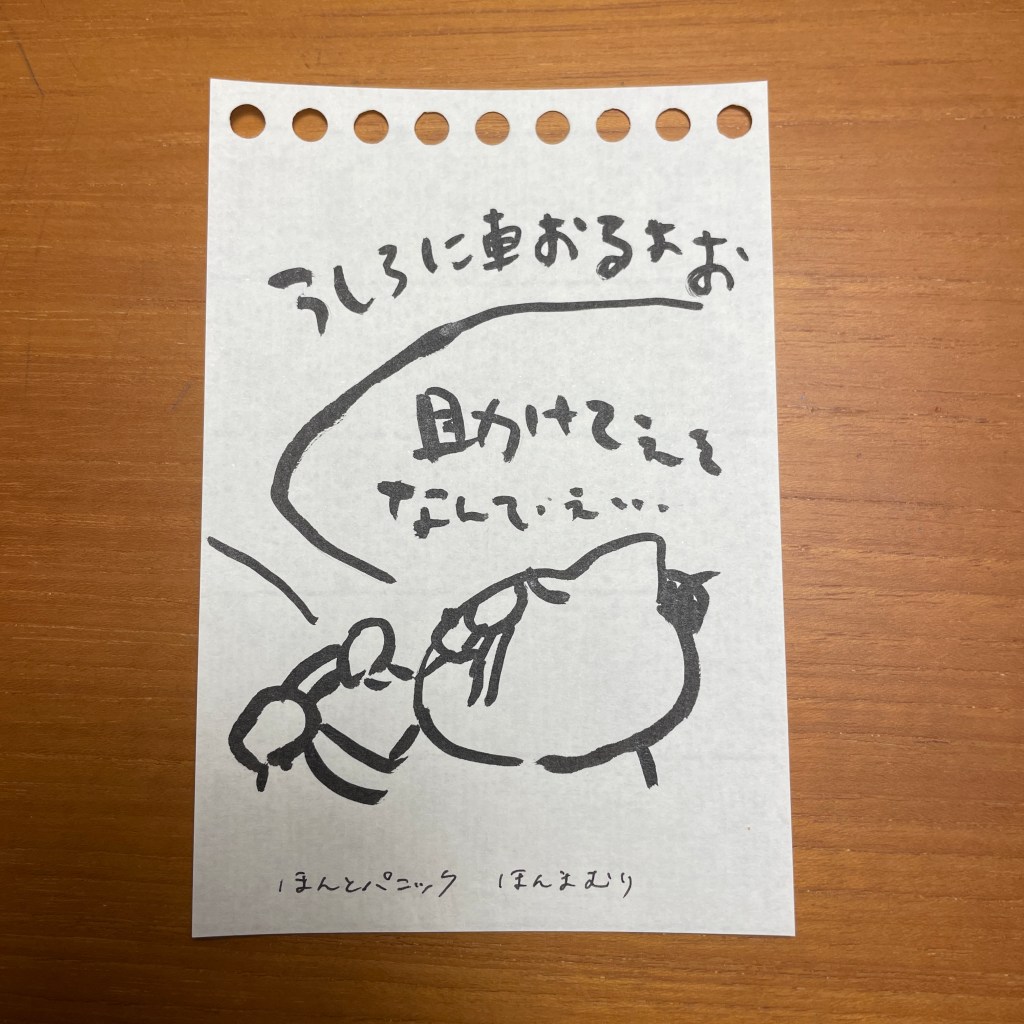 うしろに車おるよお
助けてぇぇ
なんでぇ...
ほんとパニック ほんまむり